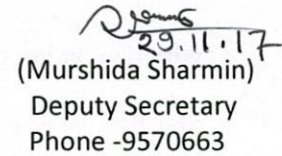 29.11.17
(Murshida Sharmin)
Deputy Secretary
Phone -9570663